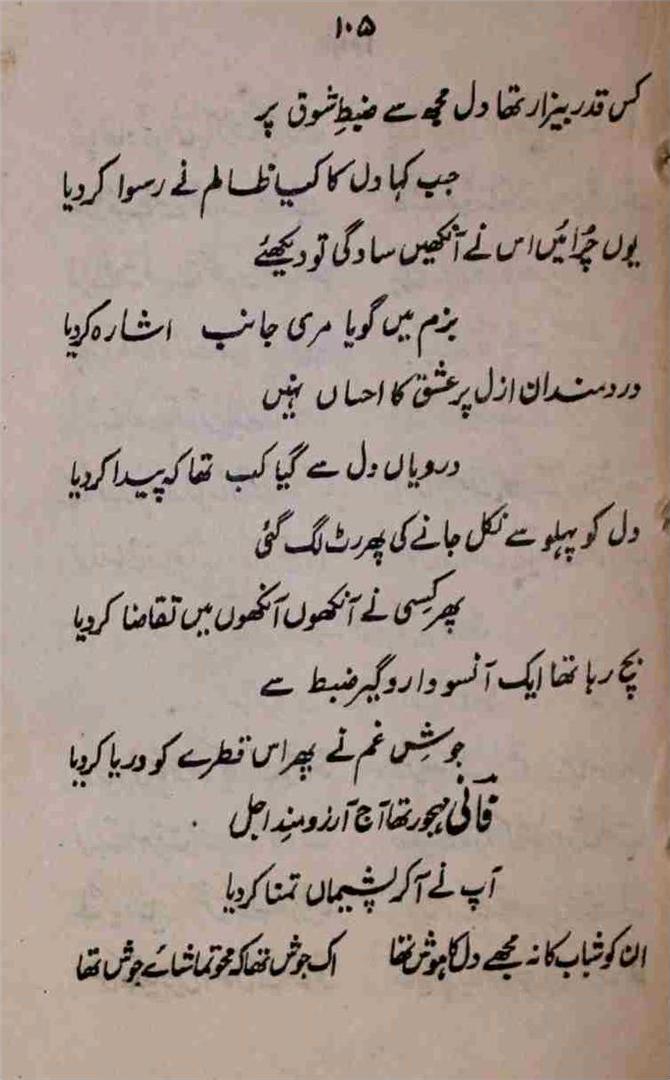 ۱۰۵
کس قدر بیزار تھا دل مجھ سے ضبطِ شوق پر
جب کہا دل کا کیا ظالم نے رسوا کر دیا
یوں چُرائیں اس نے آنکھیں سادگی تو دیکھئے
بزم میں گویا مری جانب اشارہ کر دیا
دردمندان ازل پر عشق کا احساں نہیں
درد یاں دل سے گیا کب تھا کہ پیدا کر دیا
دل کو پہلو سے نکل جانے کی پھر رٹ لگ گئی
پھر کسی نے آنکھوں آنکھوں میں تقاضا کر دیا
بچ رہا تھا ایک آنسو دار و گیر ضبط سے
جوشِ غم نے پھر اس قطرے کو دریا کر دیا
فانیؔ مہجور تھا آج آرزو مندِ اجل
آپ نے آ کر پشیماں تمنا کر دیا
ان کو شباب کا نہ مجھے دل کا ہوش تھا اک جوش تھا کہ محو تماشائے جوش تھا